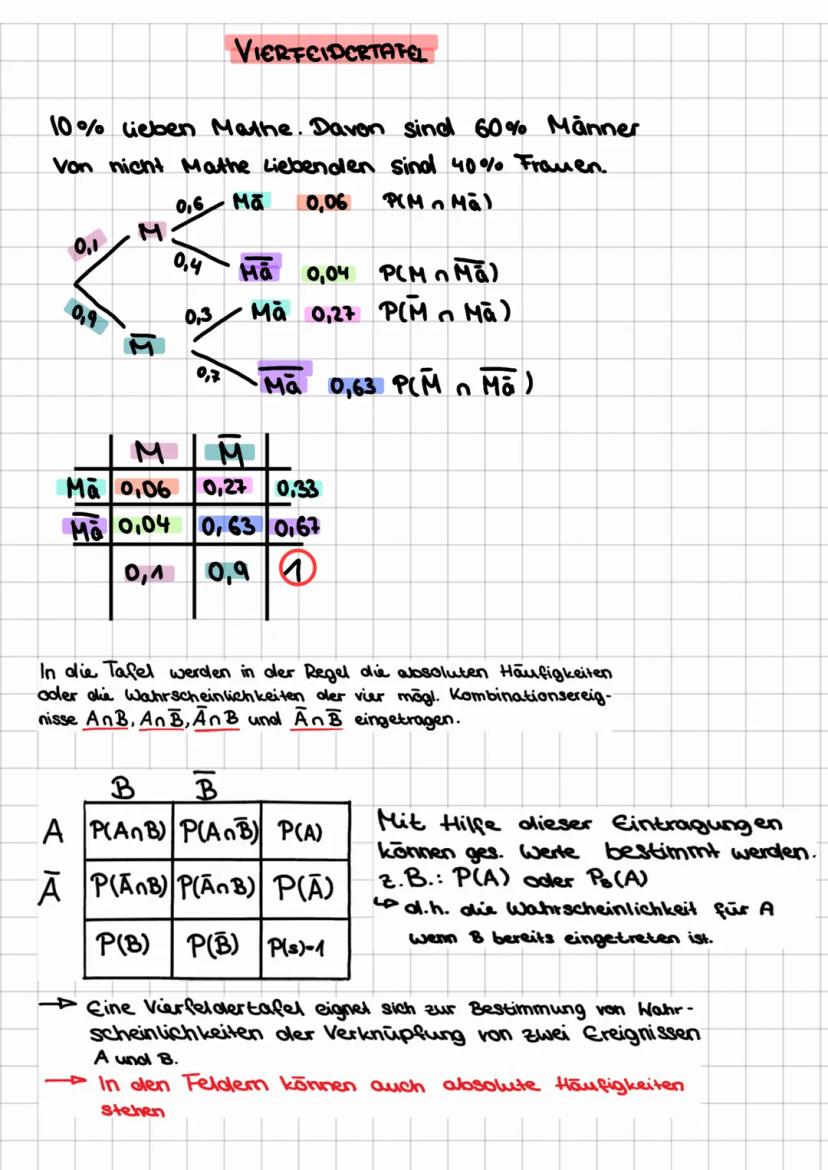 VIERFELDERTAFEL
10% lieben Mathe. Davon sind 60% Männer
Von nicht Mathe Liebenden sind 40% Frauen.
0,6 Mā 0,06 P(M ∩ Mā)
0,1 M
0,4 M̄ā̄ 0,04 P(M ∩ M̄ā̄)
0,9 M̄ 0,3 Mā 0,27 P(M̄ ∩ Mā)
0,7 M̄ā̄ 0,63 P(M̄ ∩ M̄ā̄)
M M̄
Mā 0,06 0,27 0,33
M̄ā̄ 0,04 0,63 0,67
0,1 0,9 1
In die Tafel werden in der Regel die absoluten Häufigkeiten
oder die Wahrscheinlichkeiten der vier mögl. Kombinationsereig-
nisse A∩B, A∩B̄, Ā∩B und Ā∩B̄ eingetragen.
B B̄
A P(A∩B) P(A∩B̄) P(A)
Ā P(Ā∩B) P(Ā∩B) P(Ā)
P(B) P(B̄) P(s)-1
Mit Hilfe dieser Eintragungen
können ges. Werte bestimmt werden.
z.B.: P(A) oder P_B(A)
↳ d.h. die Wahrscheinlichkeit für A
wenn B bereits eingetreten ist.
→ Eine Vierfeldertafel eignet sich zur Bestimmung von Wahr-
scheinlichkeiten der Verknüpfung von zwei Ereignissen
A und B.
→ In den Feldern können auch absolute Häufigkeiten
stehen